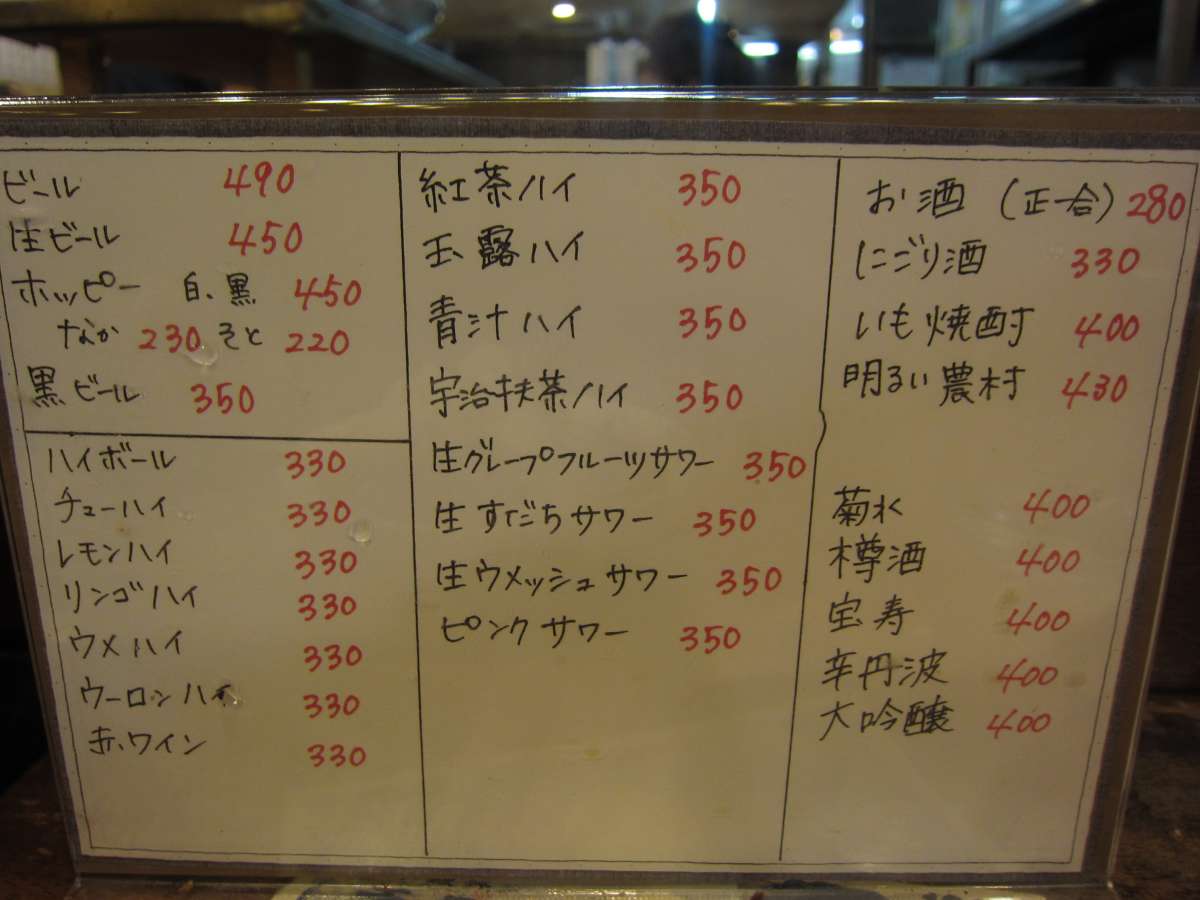 ビール 490
生ビール 450
ホッピー 白、黒 450
なか 230 そと 220
黒ビール 350
ハイボール 330
チューハイ 330
レモンハイ 330
リンゴハイ 330
ウメハイ 330
ウーロンハイ 330
赤ワイン 330
紅茶ハイ 350
玉露ハイ 350
青汁ハイ 350
宇治抹茶ハイ 350
生グレープフルーツサワー 350
生すだちサワー 350
生ウメッシュサワー 350
ピンクサワー 350
お酒 (正一合) 280
にごり酒 330
いも焼酎 400
明るい農村 430
菊水 400
樽酒 400
宝寿 400
辛丹波 400
大吟醸 400